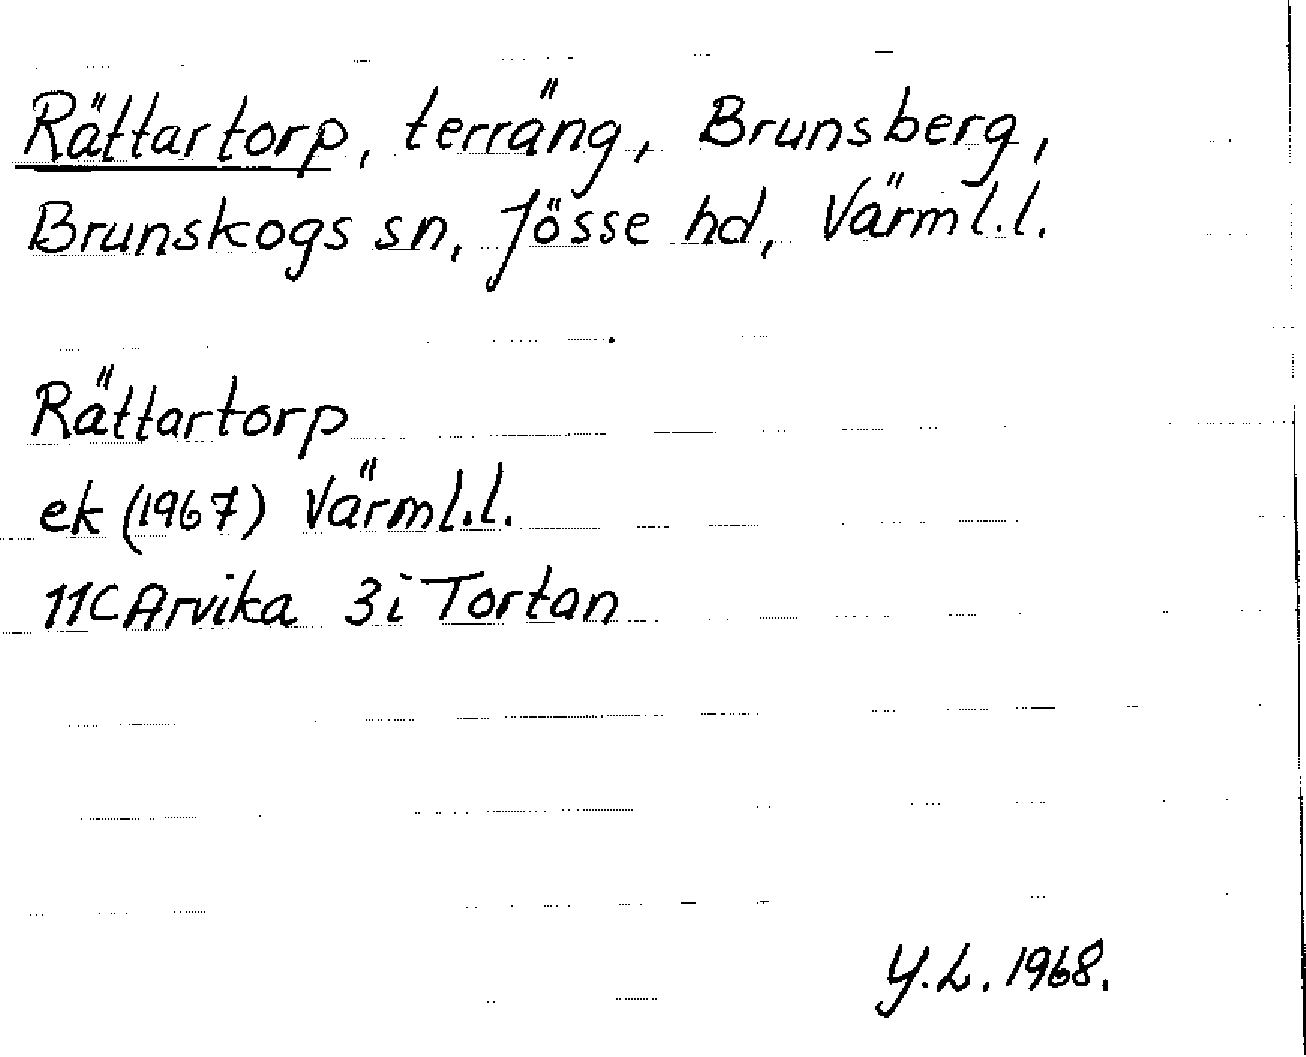 Rättartorp, terräng, Brunsberg,
Brunskogs sn, Jösse hd, Värml.l.
Rättartorp
ek (1967) Värml.l.
11C Arvika 3i Tortan
Y.L. 1968.